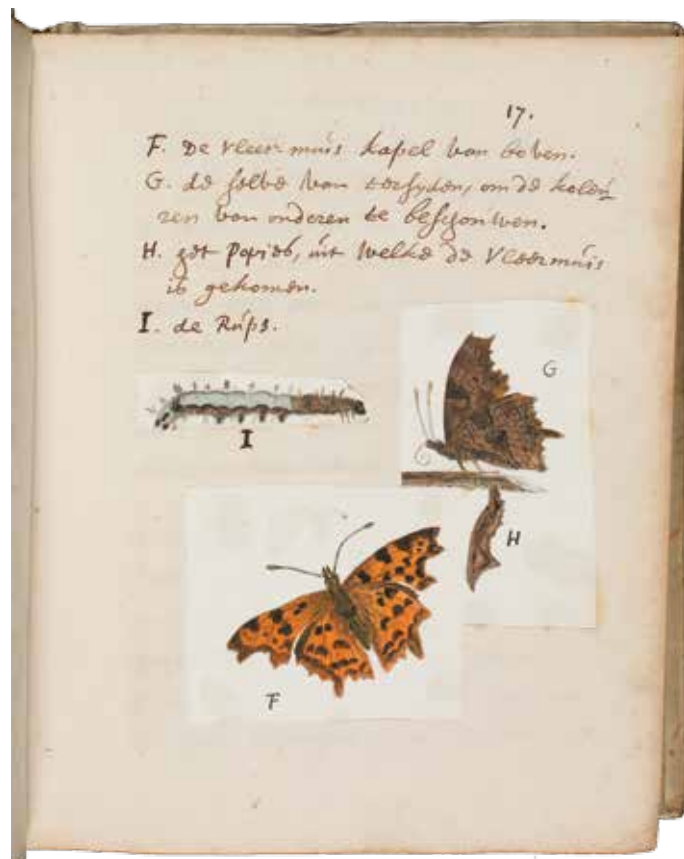 17.
F. De Vleermuis kapel van boven.
G. de selve van terseyden, om de koleu-
ren van onderen te beschouwen.
H. het Popies, uit welke de Vleermuis
is gekomen.
I. de Rups.
G
I
H
F